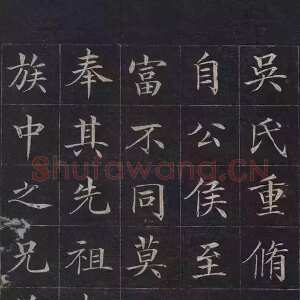 吳氏重脩
自公侯至
富不同莫
奉其先祖
族中之兄
Shufawang.CN